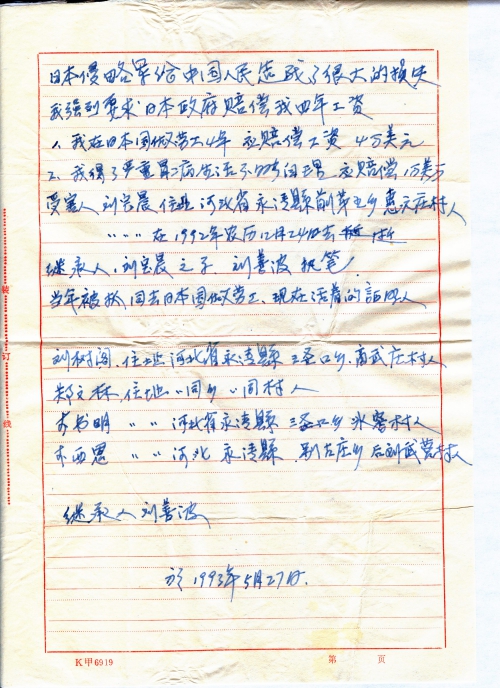 日本侵略军给中国人民造成了很大的损失
我强烈要求日本政府赔偿我四年工资
1、我在日本国做劳工4年 应赔偿工资 4万美元
2、我得了严重胃病生活不 应赔偿 1万美万
受害人 刘宝晨 住址 河北省永清縣 乡 村人
〃 〃 〃 〃 在1992年农历12月24日去 逝
继承人、刘宝晨之子 刘善波 执笔
当年被抓、同去日本国做劳工、现在活着的証明人
刘树阁、住地 河北省永清縣 三圣口乡、南武庄村人
郑文林、住地 〃 同乡 〃 同村人
书明 〃 〃 河北省永清縣 三圣口乡 村人
西恩 〃 〃 河北 永清縣 别古庄乡 后刘武营村人
继承人 刘善波
于1993年5月27日.
装
订
线
K甲6919
第 页